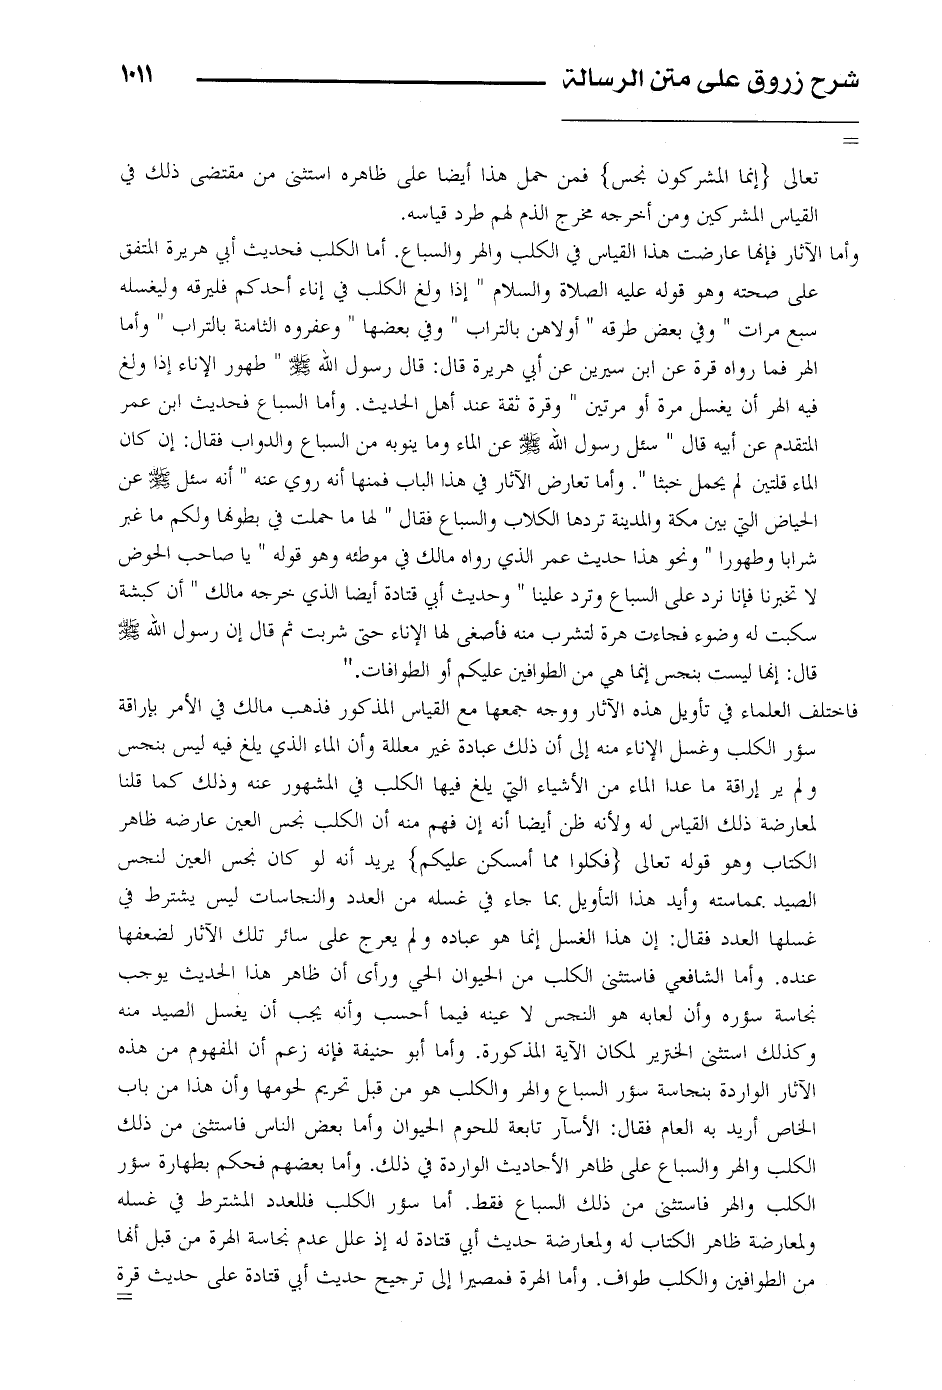 شرح زروق على متن الرسالة ١٠١١
=
تعالى {إنما المشركون نجس} فمن حمل هذا أيضا على ظاهره استثنى من مقتضى ذلك في
القياس المشركين ومن أخرجه مخرج الذم لهم طرد قياسه.
وأما الآثار فإنها عارضت هذا القياس في الكلب والهر والسباع. أما الكلب فحديث أبي هريرة المتفق
على صحته وهو قوله عليه الصلاة والسلام " إذا ولغ الكلب في إناء أحدكم فليرقه وليغسله
سبع مرات " وفي بعض طرقه " أولاهن بالتراب " وفي بعضها " وعفروه الثامنة بالتراب " وأما
الهر فما رواه قرة عن ابن سيرين عن أبي هريرة قال: قال رسول الله ﷺ " طهور الإناء إذا ولغ
فيه الهر أن يغسل مرة أو مرتين " وقرة ثقة عند أهل الحديث. وأما السباع فحديث ابن عمر
المتقدم عن أبيه قال " سئل رسول الله ﷺ عن الماء وما ينوبه من السباع والدواب فقال: إن كان
الماء قلتين لم يحمل خبثا ". وأما تعارض الآثار في هذا الباب فمنها أنه روي عنه " أنه سئل ﷺ عن
الحياض التي بين مكة والمدينة تردها الكلاب والسباع فقال " لها ما حملت في بطونها ولكم ما غبر
شرابا وطهورا " ونحو هذا حديث عمر الذي رواه مالك في موطئه وهو قوله " يا صاحب الحوض
لا تخبرنا فإنا نرد على السباع وترد علينا " وحديث أبي قتادة أيضا الذي خرجه مالك " أن كبشة
سكبت له وضوء فجاءت هرة لتشرب منه فأصغى لها الإناء حتى شربت ثم قال إن رسول الله ﷺ
قال: إنها ليست بنجس إنما هي من الطوافين عليكم أو الطوافات."
فاختلف العلماء في تأويل هذه الآثار ووجه جمعها مع القياس المذكور فذهب مالك في الأمر بإراقة
سؤر الكلب وغسل الإناء منه إلى أن ذلك عبادة غير معللة وأن الماء الذي يلغ فيه ليس بنجس
ولم ير إراقة ما عدا الماء من الأشياء التي يلغ فيها الكلب في المشهور عنه وذلك كما قلنا
لمعارضة ذلك القياس له ولأنه ظن أيضا أنه إن فهم منه أن الكلب نجس العين عارضه ظاهر
الكتاب وهو قوله تعالى {فكلوا مما أمسكن عليكم} يريد أنه لو كان نجس العين لنجس
الصيد بمماسته وأيد هذا التأويل بما جاء في غسله من العدد والنجاسات ليس يشترط في
غسلها العدد فقال: إن هذا الغسل إنما هو عباده ولم يعرج على سائر تلك الآثار لضعفها
عنده. وأما الشافعي فاستثنى الكلب من الحيوان الحي ورأى أن ظاهر هذا الحديث يوجب
نجاسة سؤره وأن لعابه هو النجس لا عينه فيما أحسب وأنه يجب أن يغسل الصيد منه
وكذلك استثنى الخنزير لمكان الآية المذكورة. وأما أبو حنيفة فإنه زعم أن المفهوم من هذه
الآثار الواردة بنجاسة سؤر السباع والهر والكلب هو من قبل تحريم لحومها وأن هذا من باب
الخاص أريد به العام فقال: الأسآر تابعة للحوم الحيوان وأما بعض الناس فاستثنى من ذلك
الكلب والهر والسباع على ظاهر الأحاديث الواردة في ذلك. وأما بعضهم فحكم بطهارة سؤر
الكلب والهر فاستثنى من ذلك السباع فقط. أما سؤر الكلب فللعدد المشترط في غسله
ولمعارضة ظاهر الكتاب له ولمعارضة حديث أبي قتادة له إذ علل عدم نجاسة الهرة من قبل أنها
من الطوافين والكلب طواف. وأما الهرة فمصيرا إلى ترجيح حديث أبي قتادة على حديث قرة
=